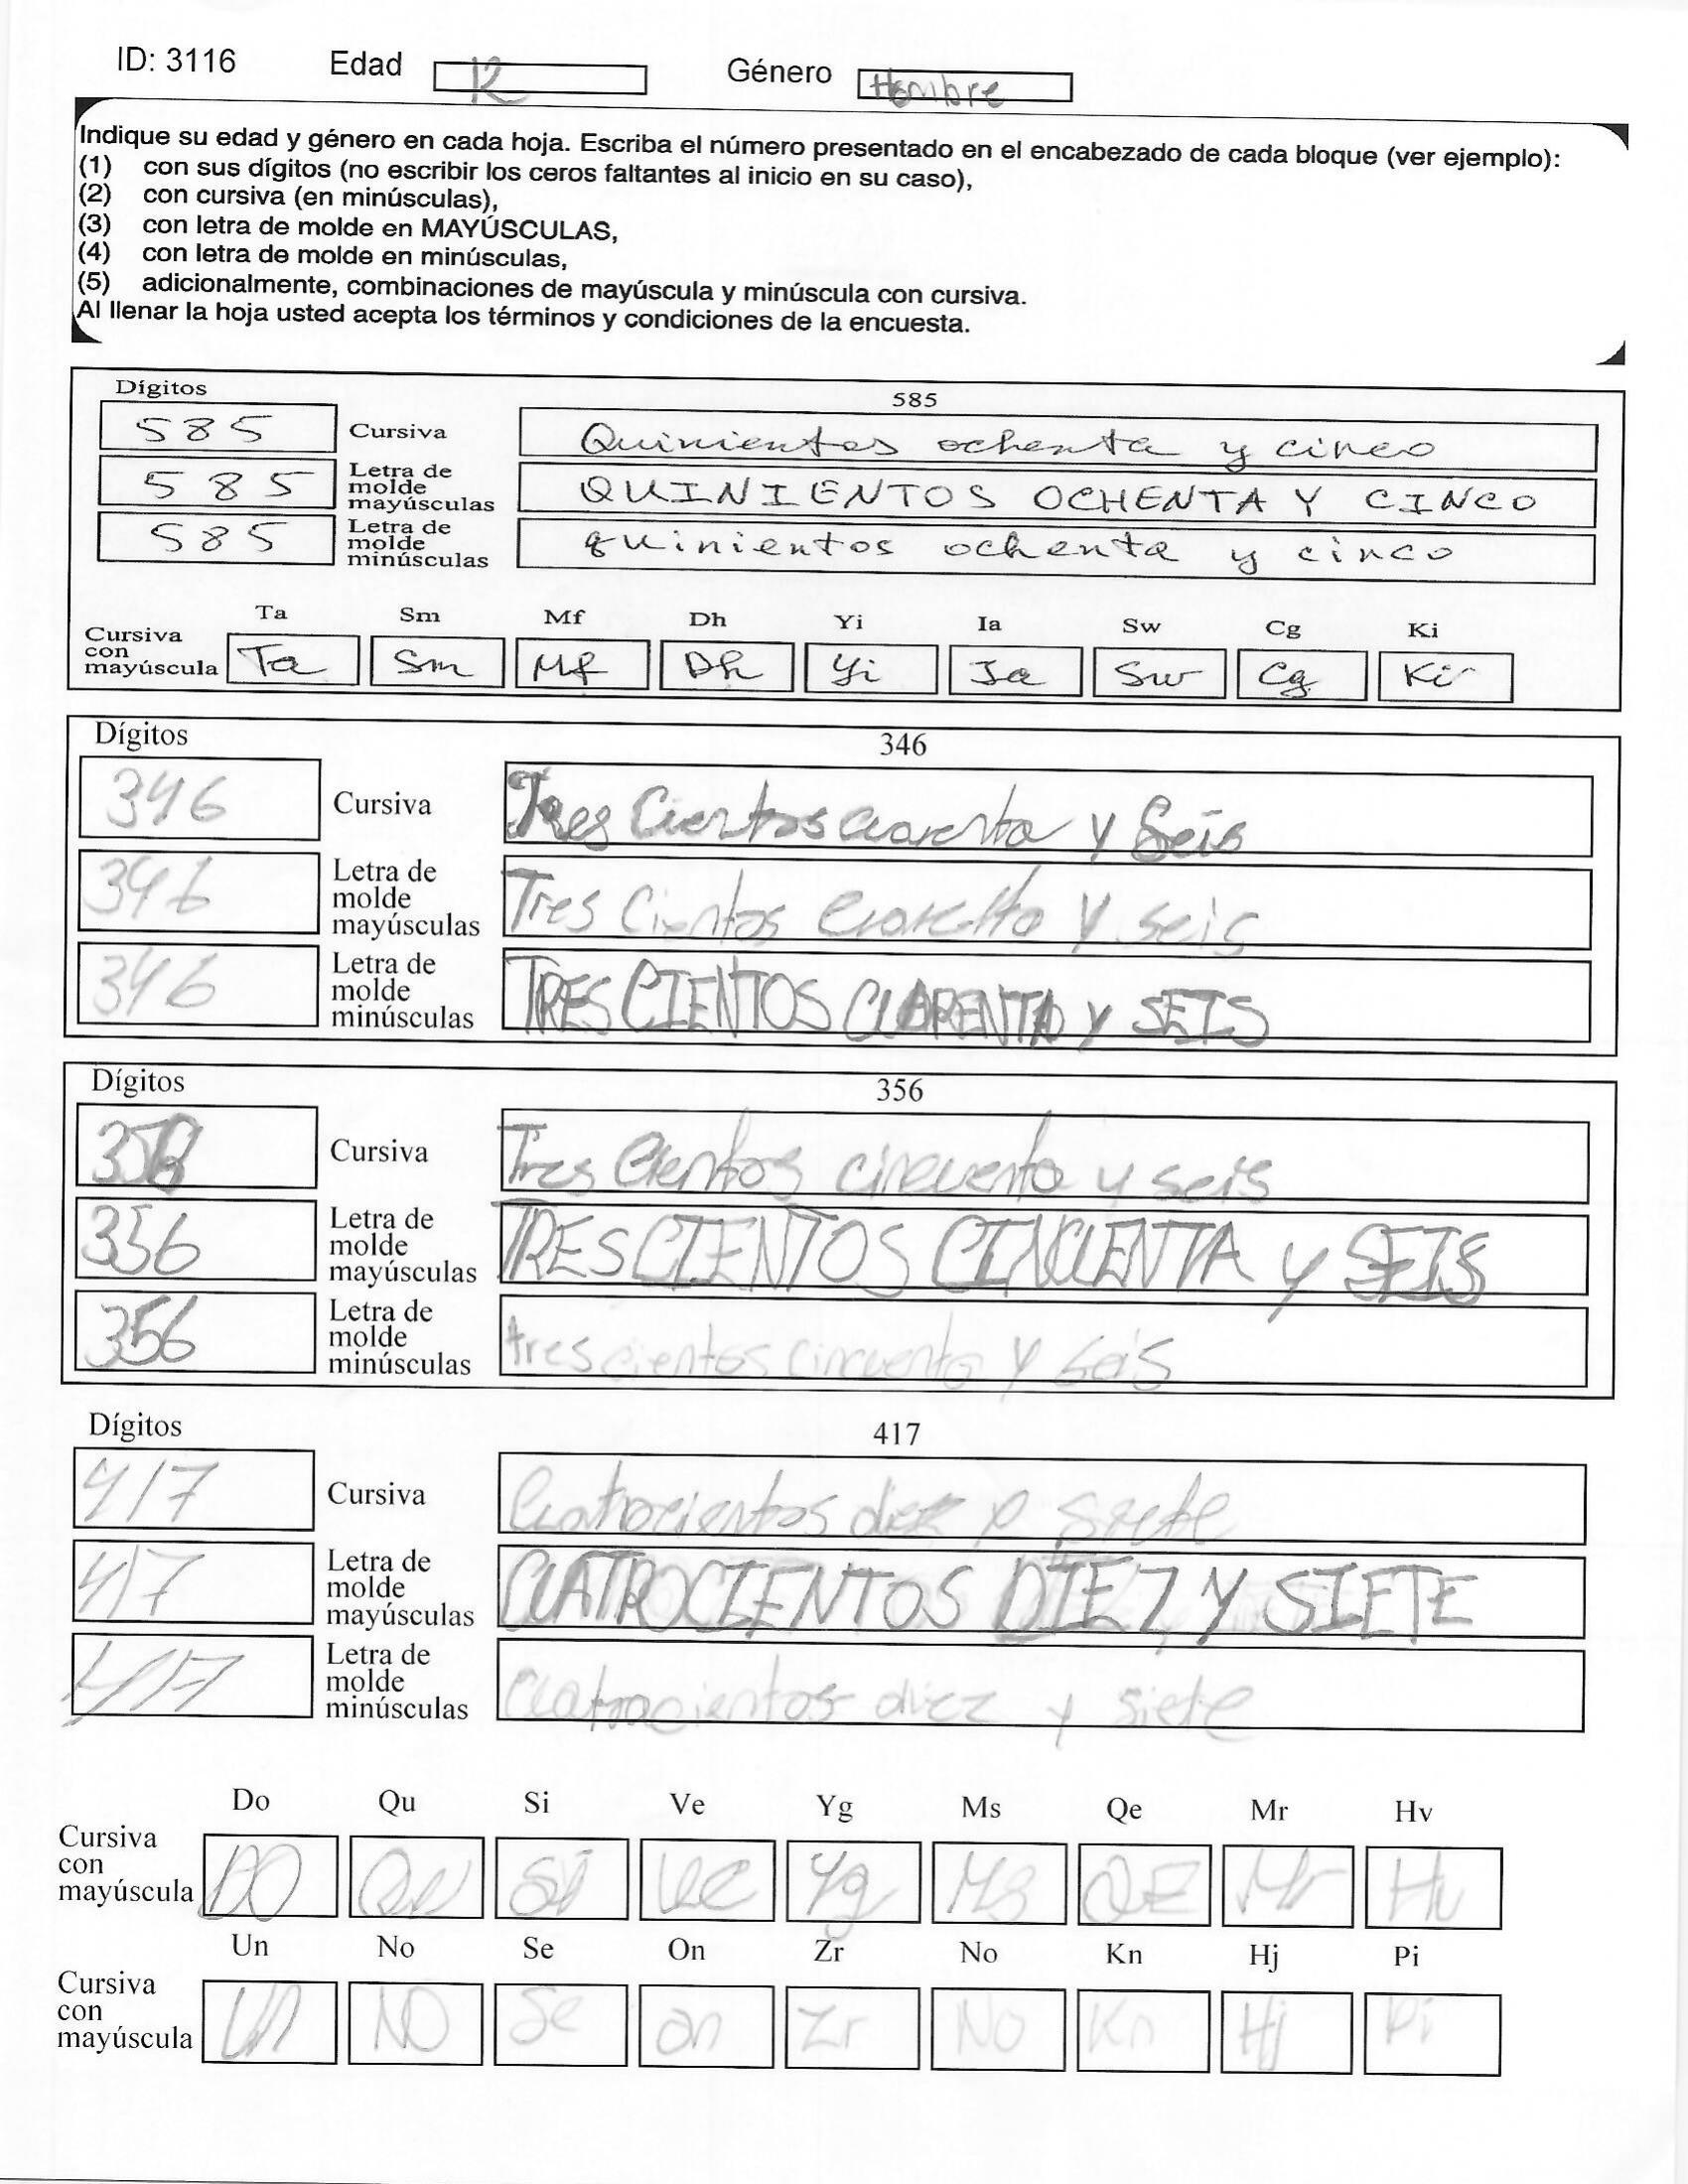 ID: 3116 Edad 12 Género Hombre
Indique su edad y género en cada hoja. Escriba el número presentado en el encabezado de cada bloque (ver ejemplo):
(1) con sus dígitos (no escribir los ceros faltantes al inicio en su caso),
(2) con cursiva (en minúsculas),
(3) con letra de molde en MAYÚSCULAS,
(4) con letra de molde en minúsculas,
(5) adicionalmente, combinaciones de mayúscula y minúscula con cursiva.
Al llenar la hoja usted acepta los términos y condiciones de la encuesta.
Dígitos 585
585 Cursiva Quinientos ochenta y cinco
585 Letra de molde mayúsculas QUINIENTOS OCHENTA Y CINCO
585 Letra de molde minúsculas quinientos ochenta y cinco
Ta Sm Mf Dh Yi Ia Sw Cg Ki
Cursiva con mayúscula Ta Sm Mf Dh Yi Ia Sw Cg Ki
Dígitos 346
346 Cursiva Tres Cientos cuarenta y Seis
346 Letra de molde mayúsculas Tres Cientos y seis
346 Letra de molde minúsculas TRES CIENTOS CUARENTA y SEIS
Dígitos 356
Cursiva Tres Cientos cincuenta y seis
356 Letra de molde mayúsculas TRES CIENTOS CINCUENTA y SEIS
356 Letra de molde minúsculas tres cientos cincuenta y seis
Dígitos 417
417 Cursiva Cuatrocientos diez y siete
417 Letra de molde mayúsculas CUATROCIENTOS DIEZ Y SIETE
417 Letra de molde minúsculas Cuatrocientos diez y siete
Do Qu Si Ve Yg Ms Qe Mr Hv
Cursiva con mayúscula DO Qu Si Ve Yg Ms QE Mr Hv
Un No Se On Zr No Kn Hj Pi
Cursiva con mayúscula Un NO Se on Zr No Kn Hj Pi